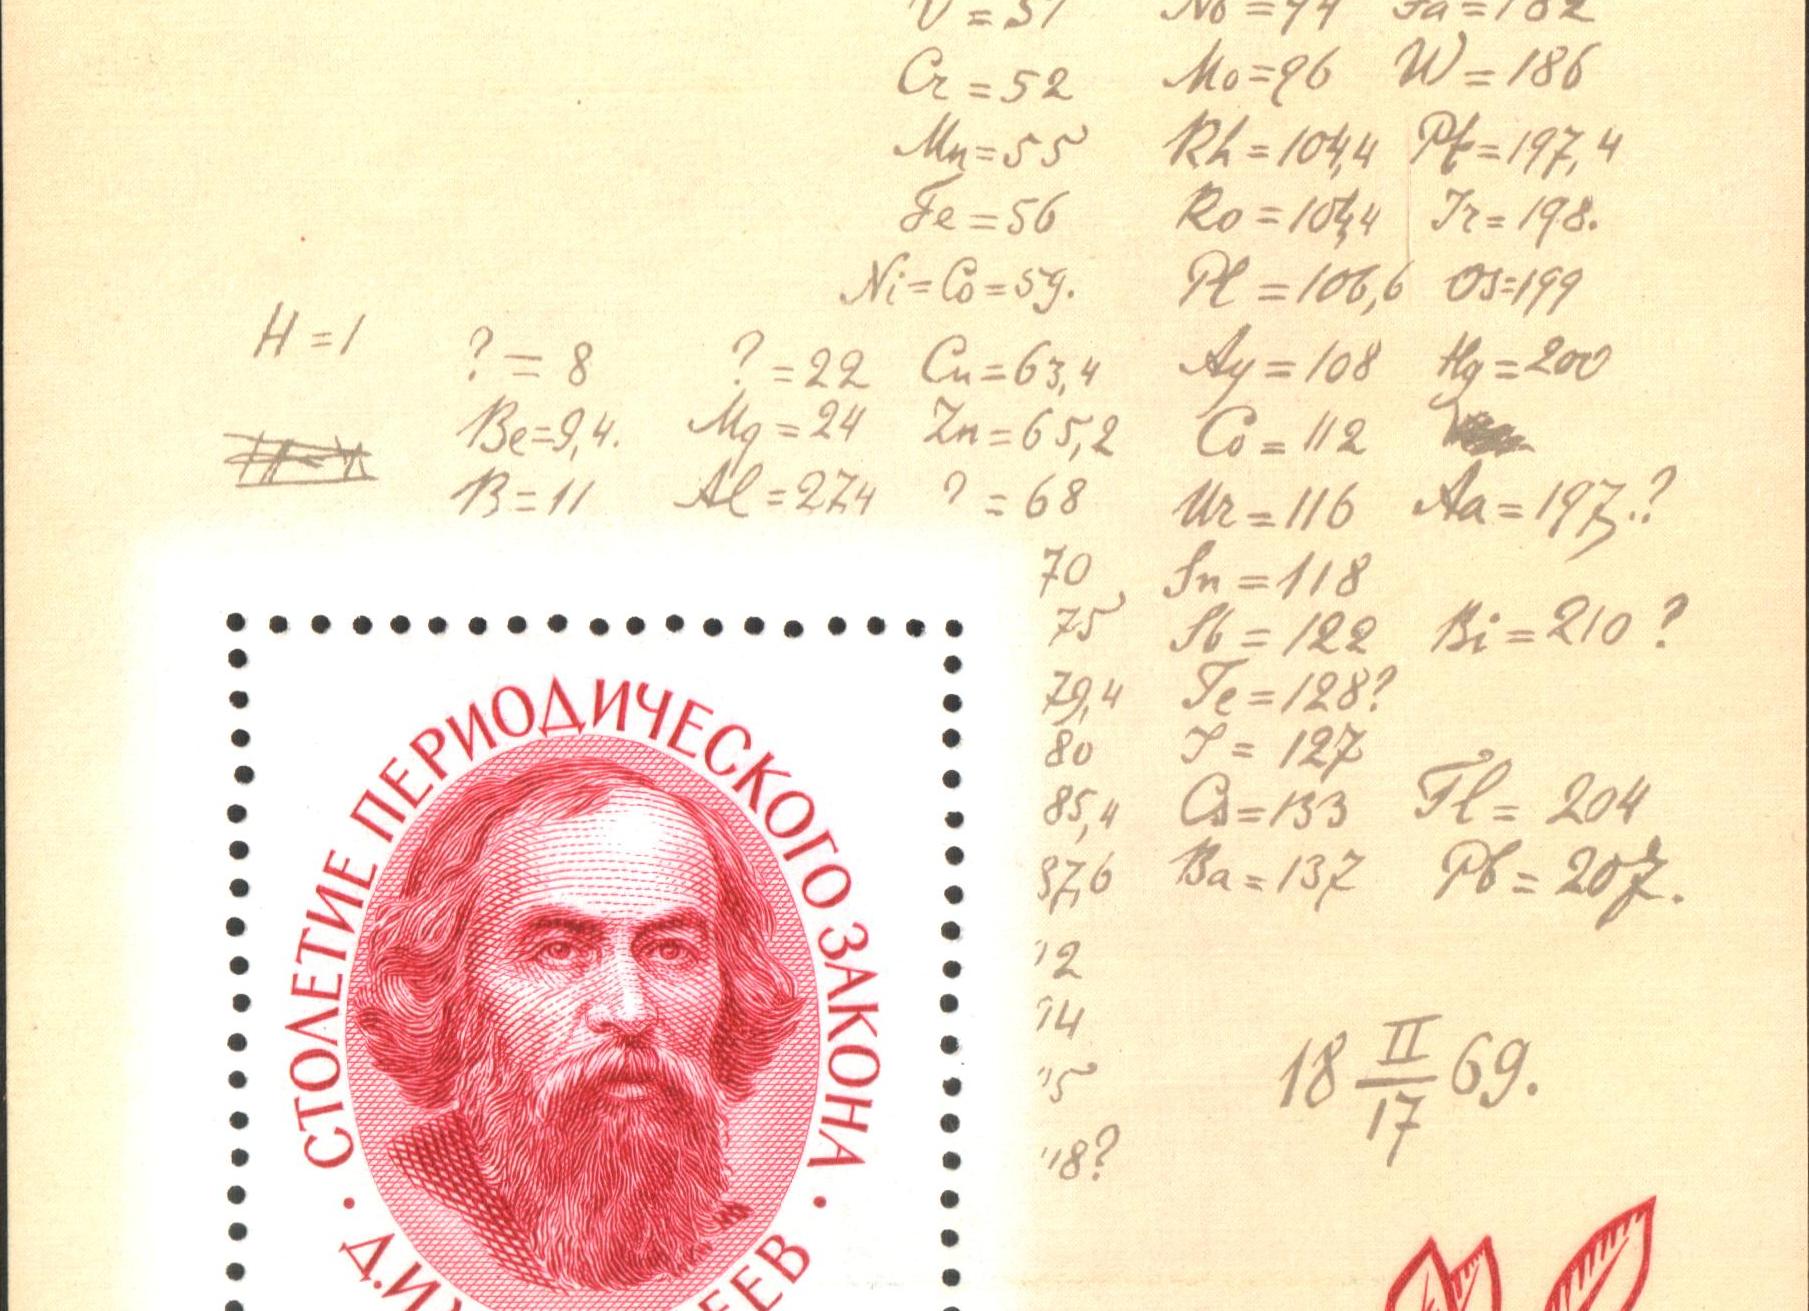 V = 51 Nb = 94 Ta = 182
Cr = 52 Mo = 96 W = 186
Mn = 55 Rh = 104,4 Pt = 197,4
Fe = 56 Ro = 104,4 Ir = 198.
Ni = Co = 59. Pl = 106,6 Os = 199
H = 1 ? = 8 ? = 22 Cu = 63,4 Ag = 108 Hg = 200
Be = 9,4. Mg = 24 Zn = 65,2 Cd = 112
B = 11 Al = 27,4 ? = 68 Ur = 116 Au = 197.?
70 Sn = 118
75 Sb = 122 Bi = 210 ?
79,4 Te = 128?
80 I = 127
85,4 Cs = 133 Tl = 204
87,6 Ba = 137 Pb = 207.
18 II/17 69.
СТОЛЕТИЕ ПЕРИОДИЧЕСКОГО ЗАКОНА